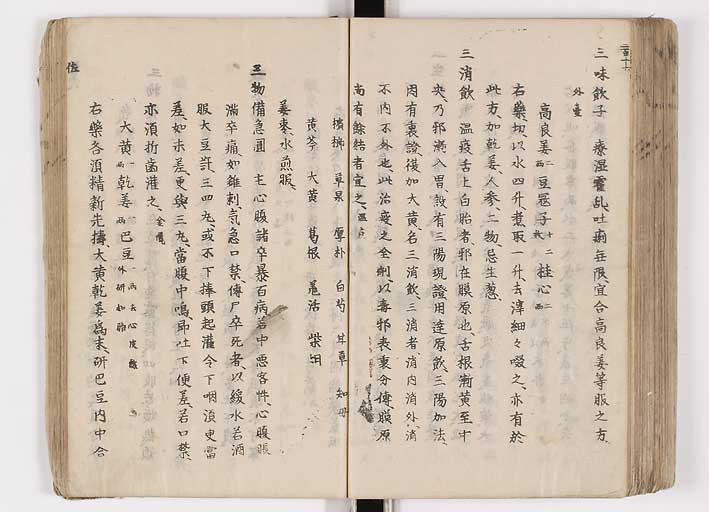 三味飲子　療湿霍乱吐痢無限宜合高良姜等服之方
外臺
高良姜二両　豆蔻子十二枚　桂心二両
右藥切以水四升煮取一升去滓細々啜之亦有於
此方加乾姜人参二物忌生葱
三消飲　温疫舌上白胎者邪在膜原也舌根漸黄至中
央乃邪漸入胃設有三陽現證用達原飲三陽加法
因有裏證復加大黄名三消飲三消者消内消外消
不内不外也此治疫之全剤以毒邪表裏分傳膜原
尚有餘結者宜之
檳榔　草果　厚朴　白芍　甘草　知母
黄芩　大黄　葛根　羌活　柴胡
姜棗水煎服
三物備急圓　主心腹諸卒暴百病若中悪客忤心腹脹
満卒痛如錐刺氣急口禁傳尸卒死者以緩水若酒
服大豆許三四丸或不下捧頭起灌令下咽須更當
差如未差更與三丸當腹中鳴即吐下便差若口禁
亦須折歯灌之　金匱
大黄一両　乾姜一両　巴豆一両去心皮熬外研如脂
右藥各須精新先擣大黄乾姜為末研巴豆内中合